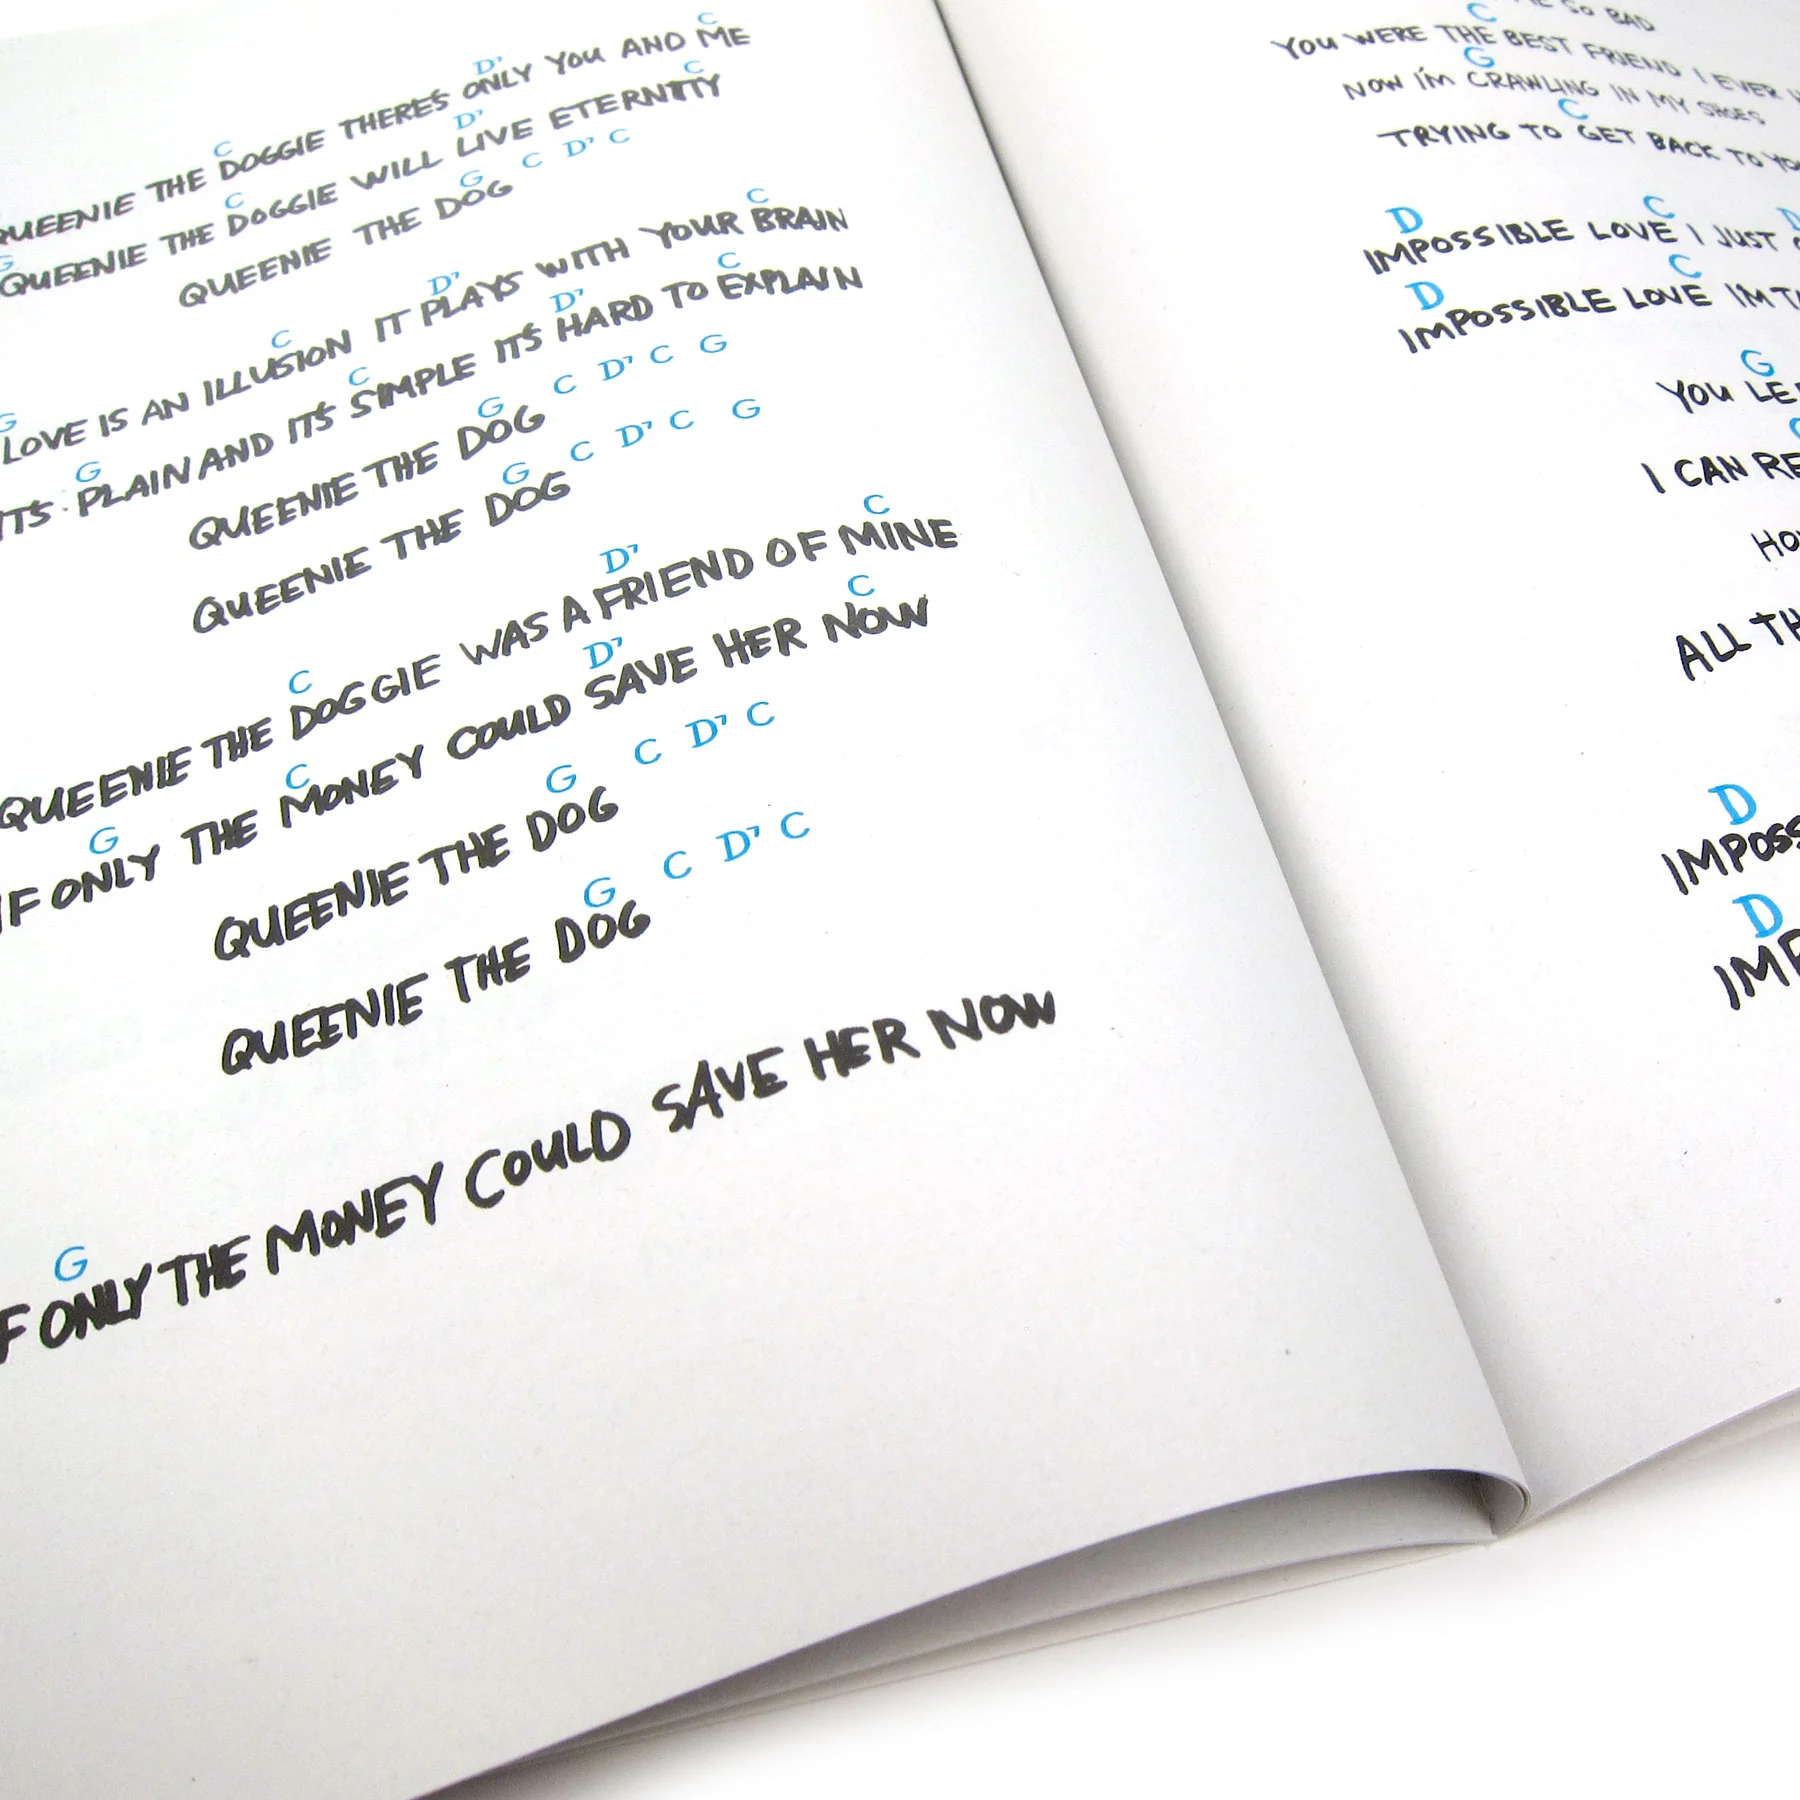 C
D7 C
QUEENIE THE DOGGIE THERE'S ONLY YOU AND ME
G C D7 C
QUEENIE THE DOGGIE WILL LIVE ETERNITY
G C D7 C
QUEENIE THE DOG
G C D7 C
LOVE IS AN ILLUSION IT PLAYS WITH YOUR BRAIN
G C D7 C
IT'S PLAIN AND IT'S SIMPLE IT'S HARD TO EXPLAIN
G C D7 C G
QUEENIE THE DOG
G C D7 C G
QUEENIE THE DOG
C D7 C
QUEENIE THE DOGGIE WAS A FRIEND OF MINE
G C D7 C
IF ONLY THE MONEY COULD SAVE HER NOW
G C D7 C
QUEENIE THE DOG
G C D7 C
QUEENIE THE DOG
G
IF ONLY THE MONEY COULD SAVE HER NOW
SO BAD
C
YOU WERE THE BEST FRIEND I EVER
G
NOW I'M CRAWLING IN MY SHOES
C
TRYING TO GET BACK TO
D C D
IMPOSSIBLE LOVE I JUST
D C
IMPOSSIBLE LOVE IM
G
YOU
I CAN
ALL
D
D